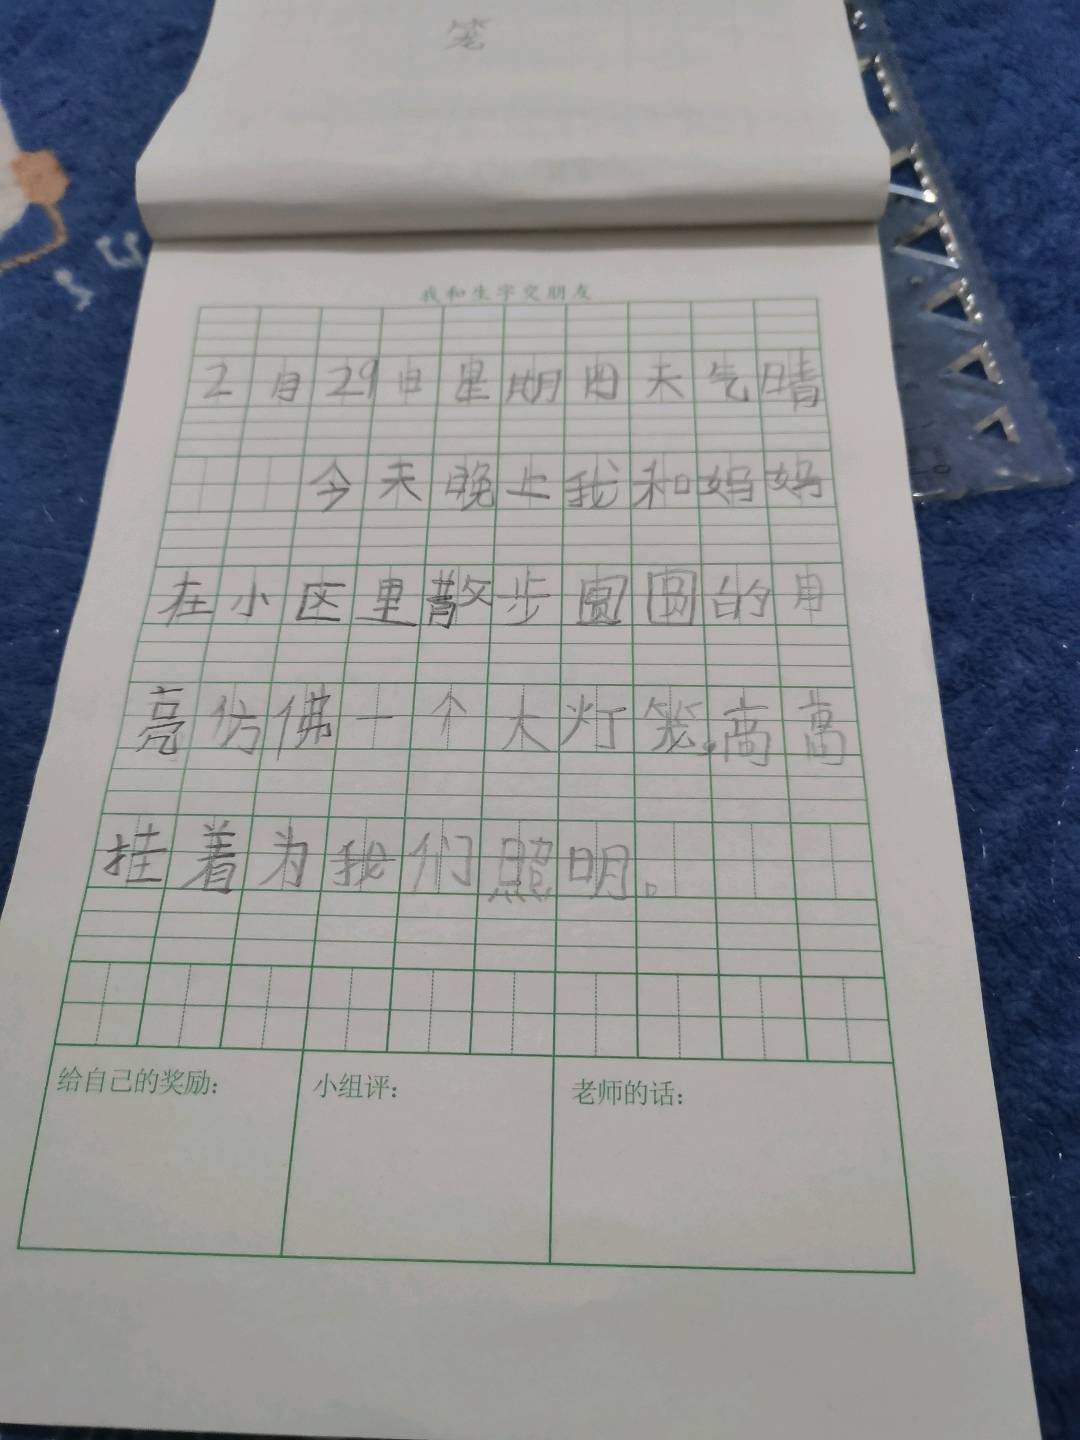 笼
我和生字交朋友
2月29日星期四天气晴
今天晚上我和妈妈
在小区里散步圆圆的月
亮仿佛一个大灯笼,高高
挂着为我们照明。
给自己的奖励:
小组评:
老师的话: